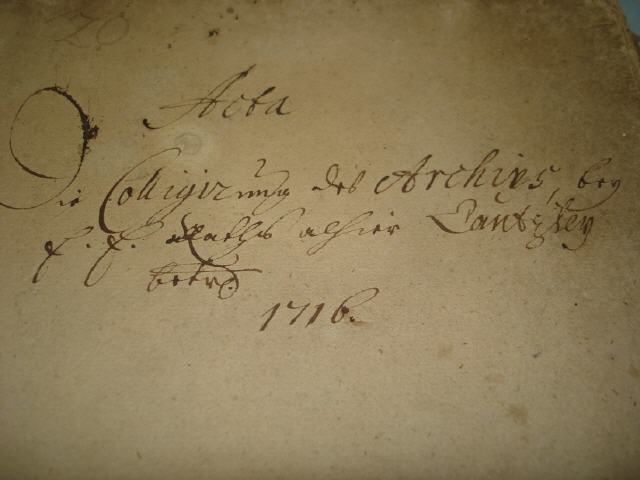 20
Acta
Die Colligirung des Archivs, bey
E. E. Raths alhier Cantzley
betr.
1716.